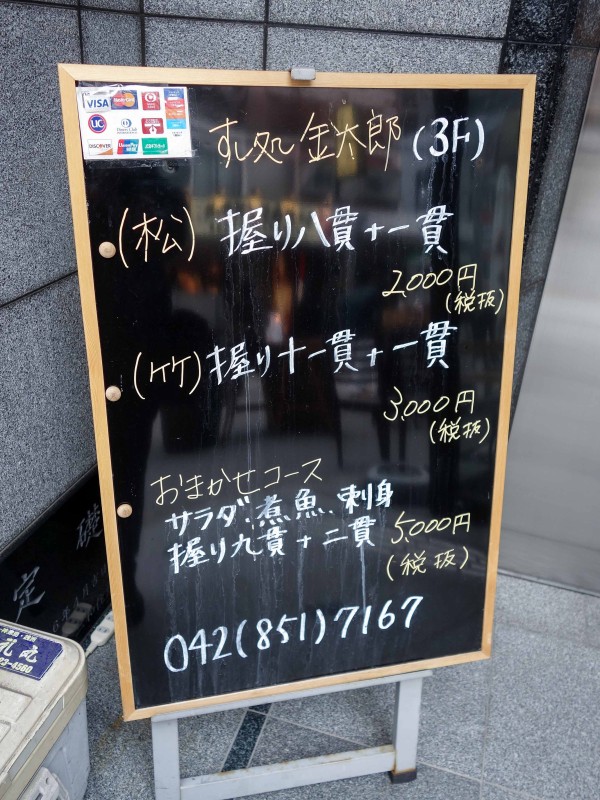 VISA
MasterCard
UC
DISCOVER
UnionPay
すし処 金太郎 (3F)
(松) 握り八貫+一貫
2,000円
(税抜)
(竹) 握り十一貫+一貫
3,000円
(税抜)
おまかせコース
サラダ、煮魚、刺身
握り九貫+二貫 5,000円
(税抜)
042(851)7167
礎
定
丸
93-4560